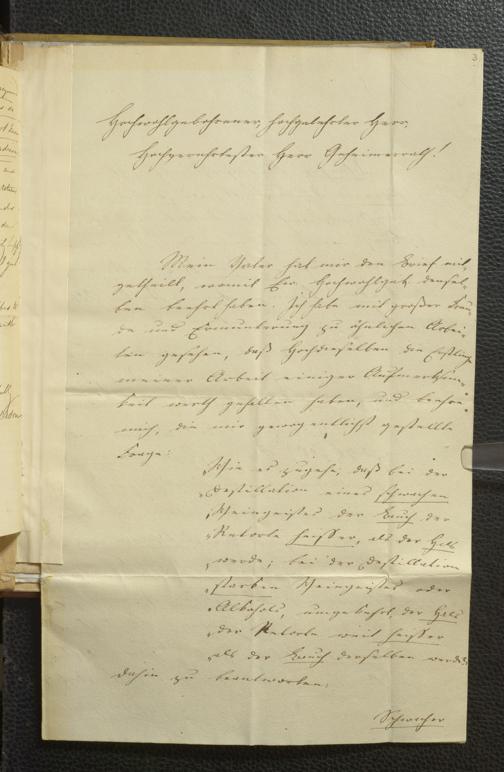 3
Hochwohlgebohrener, hochgelehrter Herr,
Hochverehrtester Herr Geheimerrath!
Mein Vater hat mir den Brief mit-
getheilt, womit Ew. Hochwohlgeb. densel-
ben beehrt haben. Ich habe mit großer Freu-
de und Ermunterung zu ähnlichen Arbei-
ten gesehen, daß Hochdieselben die Erstlinge
meiner Arbeit einiger Aufmerksam-
keit werth gehalten haben, und beehre
mich, die mir gewogentlichst gestellte
Frage:
„Wie es zugehe, daß bei der
„Destillation eines schwachen
„Weingeistes der Bauch der
„Retorte heisser, als der Hals
„werde; bei der Destillation
„starken Weingeistes oder
„Alkohols, umgekehrt, der Hals
„der Retorte weit heisser
„als der Bauch derselben werde,
dahin zu beantworten:
Schwacher